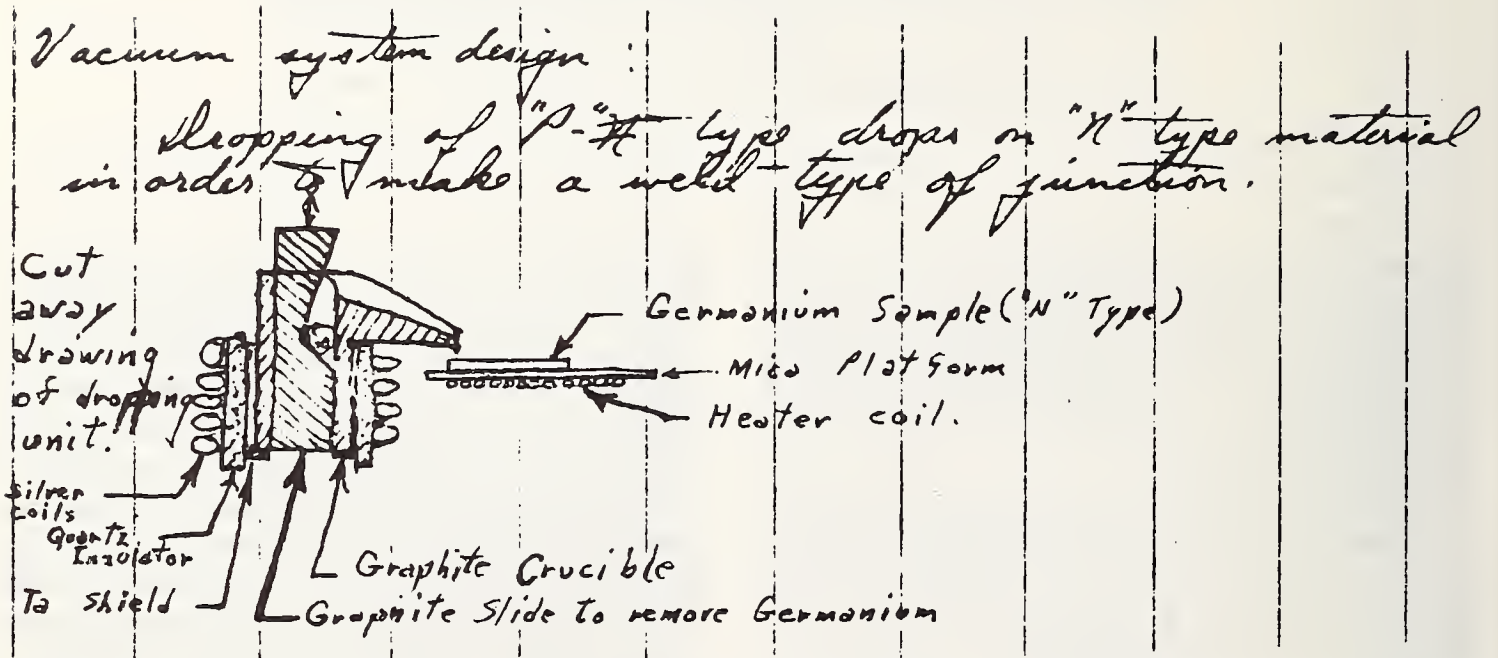 Vacuum system design :
Dropping of "P-" type drops on "N" type material
in order to make a weld type of junction.
Cut
away
drawing
of dropping
unit.
Germanium Sample ("N" Type)
Mica Platform
Heater coil.
silver
coils
Quartz
Insulator
Ta shield
Graphite Crucible
Graphite Slide to remove Germanium